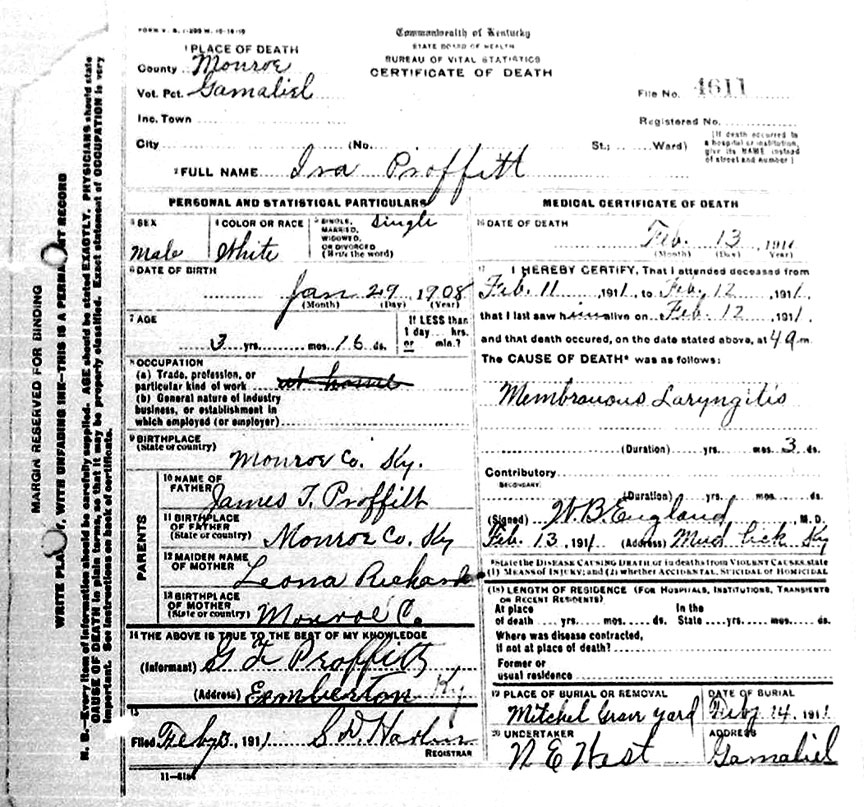 FORM V. S. 1-200 M. 10-18-10
Commonwealth of Kentucky
STATE BOARD OF HEALTH
BUREAU OF VITAL STATISTICS
CERTIFICATE OF DEATH
1 PLACE OF DEATH
County Monroe
Vot. Pct. Gamaliel
File No. 4611
Inc. Town
Registered No.
City (No. St.; Ward)
[If death occurred in
a hospital or institution,
give its NAME instead
of street and number]
2 FULL NAME Ira Proffitt
PERSONAL AND STATISTICAL PARTICULARS
3 SEX
Male
4 COLOR OR RACE
White
5 SINGLE,
MARRIED,
WIDOWED,
OR DIVORCED
(Write the word)
Single
6 DATE OF BIRTH
Jan 29 1908
(Month) (Day) (Year)
7 AGE
3 yrs. mos. 16 ds.
If LESS than
1 day... hrs.
or min.?
8 OCCUPATION
(a) Trade, profession, or
particular kind of work at home
(b) General nature of industry
business, or establishment in
which employed (or employer)
9 BIRTHPLACE
(State or country)
Monroe Co. Ky.
PARENTS
10 NAME OF
FATHER
James T. Proffitt
11 BIRTHPLACE
OF FATHER
(State or country) Monroe Co. Ky
12 MAIDEN NAME
OF MOTHER
Leona
13 BIRTHPLACE
OF MOTHER
(State or country) Monroe C.
14 THE ABOVE IS TRUE TO THE BEST OF MY KNOWLEDGE
(Informant) Proffitt
(Address) Ky
15
Filed Feby 3, 1911
REGISTRAR
11-6184
MEDICAL CERTIFICATE OF DEATH
16 DATE OF DEATH
Feb. 13, 1911
(Month) (Day) Year)
17 I HEREBY CERTIFY, That I attended deceased from
Feb. 11, 1911, to Feb. 12, 1911,
that I last saw him alive on Feb. 12 1911,
and that death occured, on the date stated above, at 4 a m.
The CAUSE OF DEATH* was as follows:
Membranous Laryngitis
(Duration) yrs. mos. 3 ds.
Contributory
SECONDARY
(Duration) yrs. mos. ds.
(Signed) W. B. England, M. D.
Feb. 13, 1911 (Address) Mud Lick Ky
*State the DISEASE CAUSING DEATH or in deaths from VIOLENT CAUSES, state
(1) MEANS OF INJURY; and (2) whether ACCIDENTAL, SUICIDAL OR HOMICIDAL
(18) LENGTH OF RESIDENCE (FOR HOSPITALS, INSTITUTIONS, TRANSIENTS
OR RECENT RESIDENTS)
At place
of death yrs. mos. ds.
In the
State yrs. mos. ds.
Where was disease contracted,
if not at place of death?
Former or
usual residence
19 PLACE OF BURIAL OR REMOVAL
Mitchel Grave yard
DATE OF BURIAL
14, 1911
20 UNDERTAKER
N E West
ADDRESS
Gamaliel
MARGIN RESERVED FOR BINDING
WRITE PLAINLY, WITH UNFADING INK—THIS IS A PERMANENT RECORD
N. B.—Every item of information should be carefully supplied. AGE should be stated EXACTLY. PHYSICIANS should state
CAUSE OF DEATH in plain terms, so that it may be properly classified. Exact statement of OCCUPATION is very
important. See instructions on back of certificate.